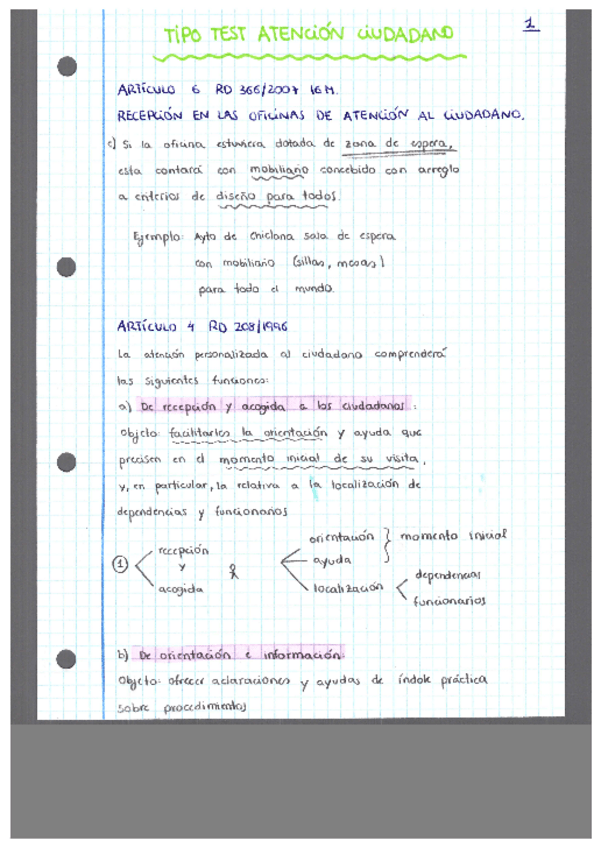 1
TIPO TEST ATENCIÓN CIUDADANO
ARTÍCULO 6 RD 366/2007 16 M.
RECEPCIÓN EN LAS OFICINAS DE ATENCIÓN AL CIUDADANO.
c) Si la oficina estuviera dotada de zona de espera,
esta contará con mobiliario concebido con arreglo
a criterios de diseño para todos.
Ejemplo: Ayto de Chiclana sala de espera
con mobiliario (sillas, mesas)
para todo el mundo.
ARTÍCULO 4 RD 208/1996
La atención personalizada al ciudadano comprenderá
las siguientes funciones:
a) De recepción y acogida a los ciudadanos:
Objeto: facilitarles la orientación y ayuda que
precisen en el momento inicial de su visita,
y, en particular, la relativa a la localización de
dependencias y funcionarios
orientación } momento inicial
recepción
① y ayuda
acogida localización dependencias
funcionarios
b) De orientación e información:
Objeto: ofrecer aclaraciones y ayudas de índole práctica
sobre procedimientos